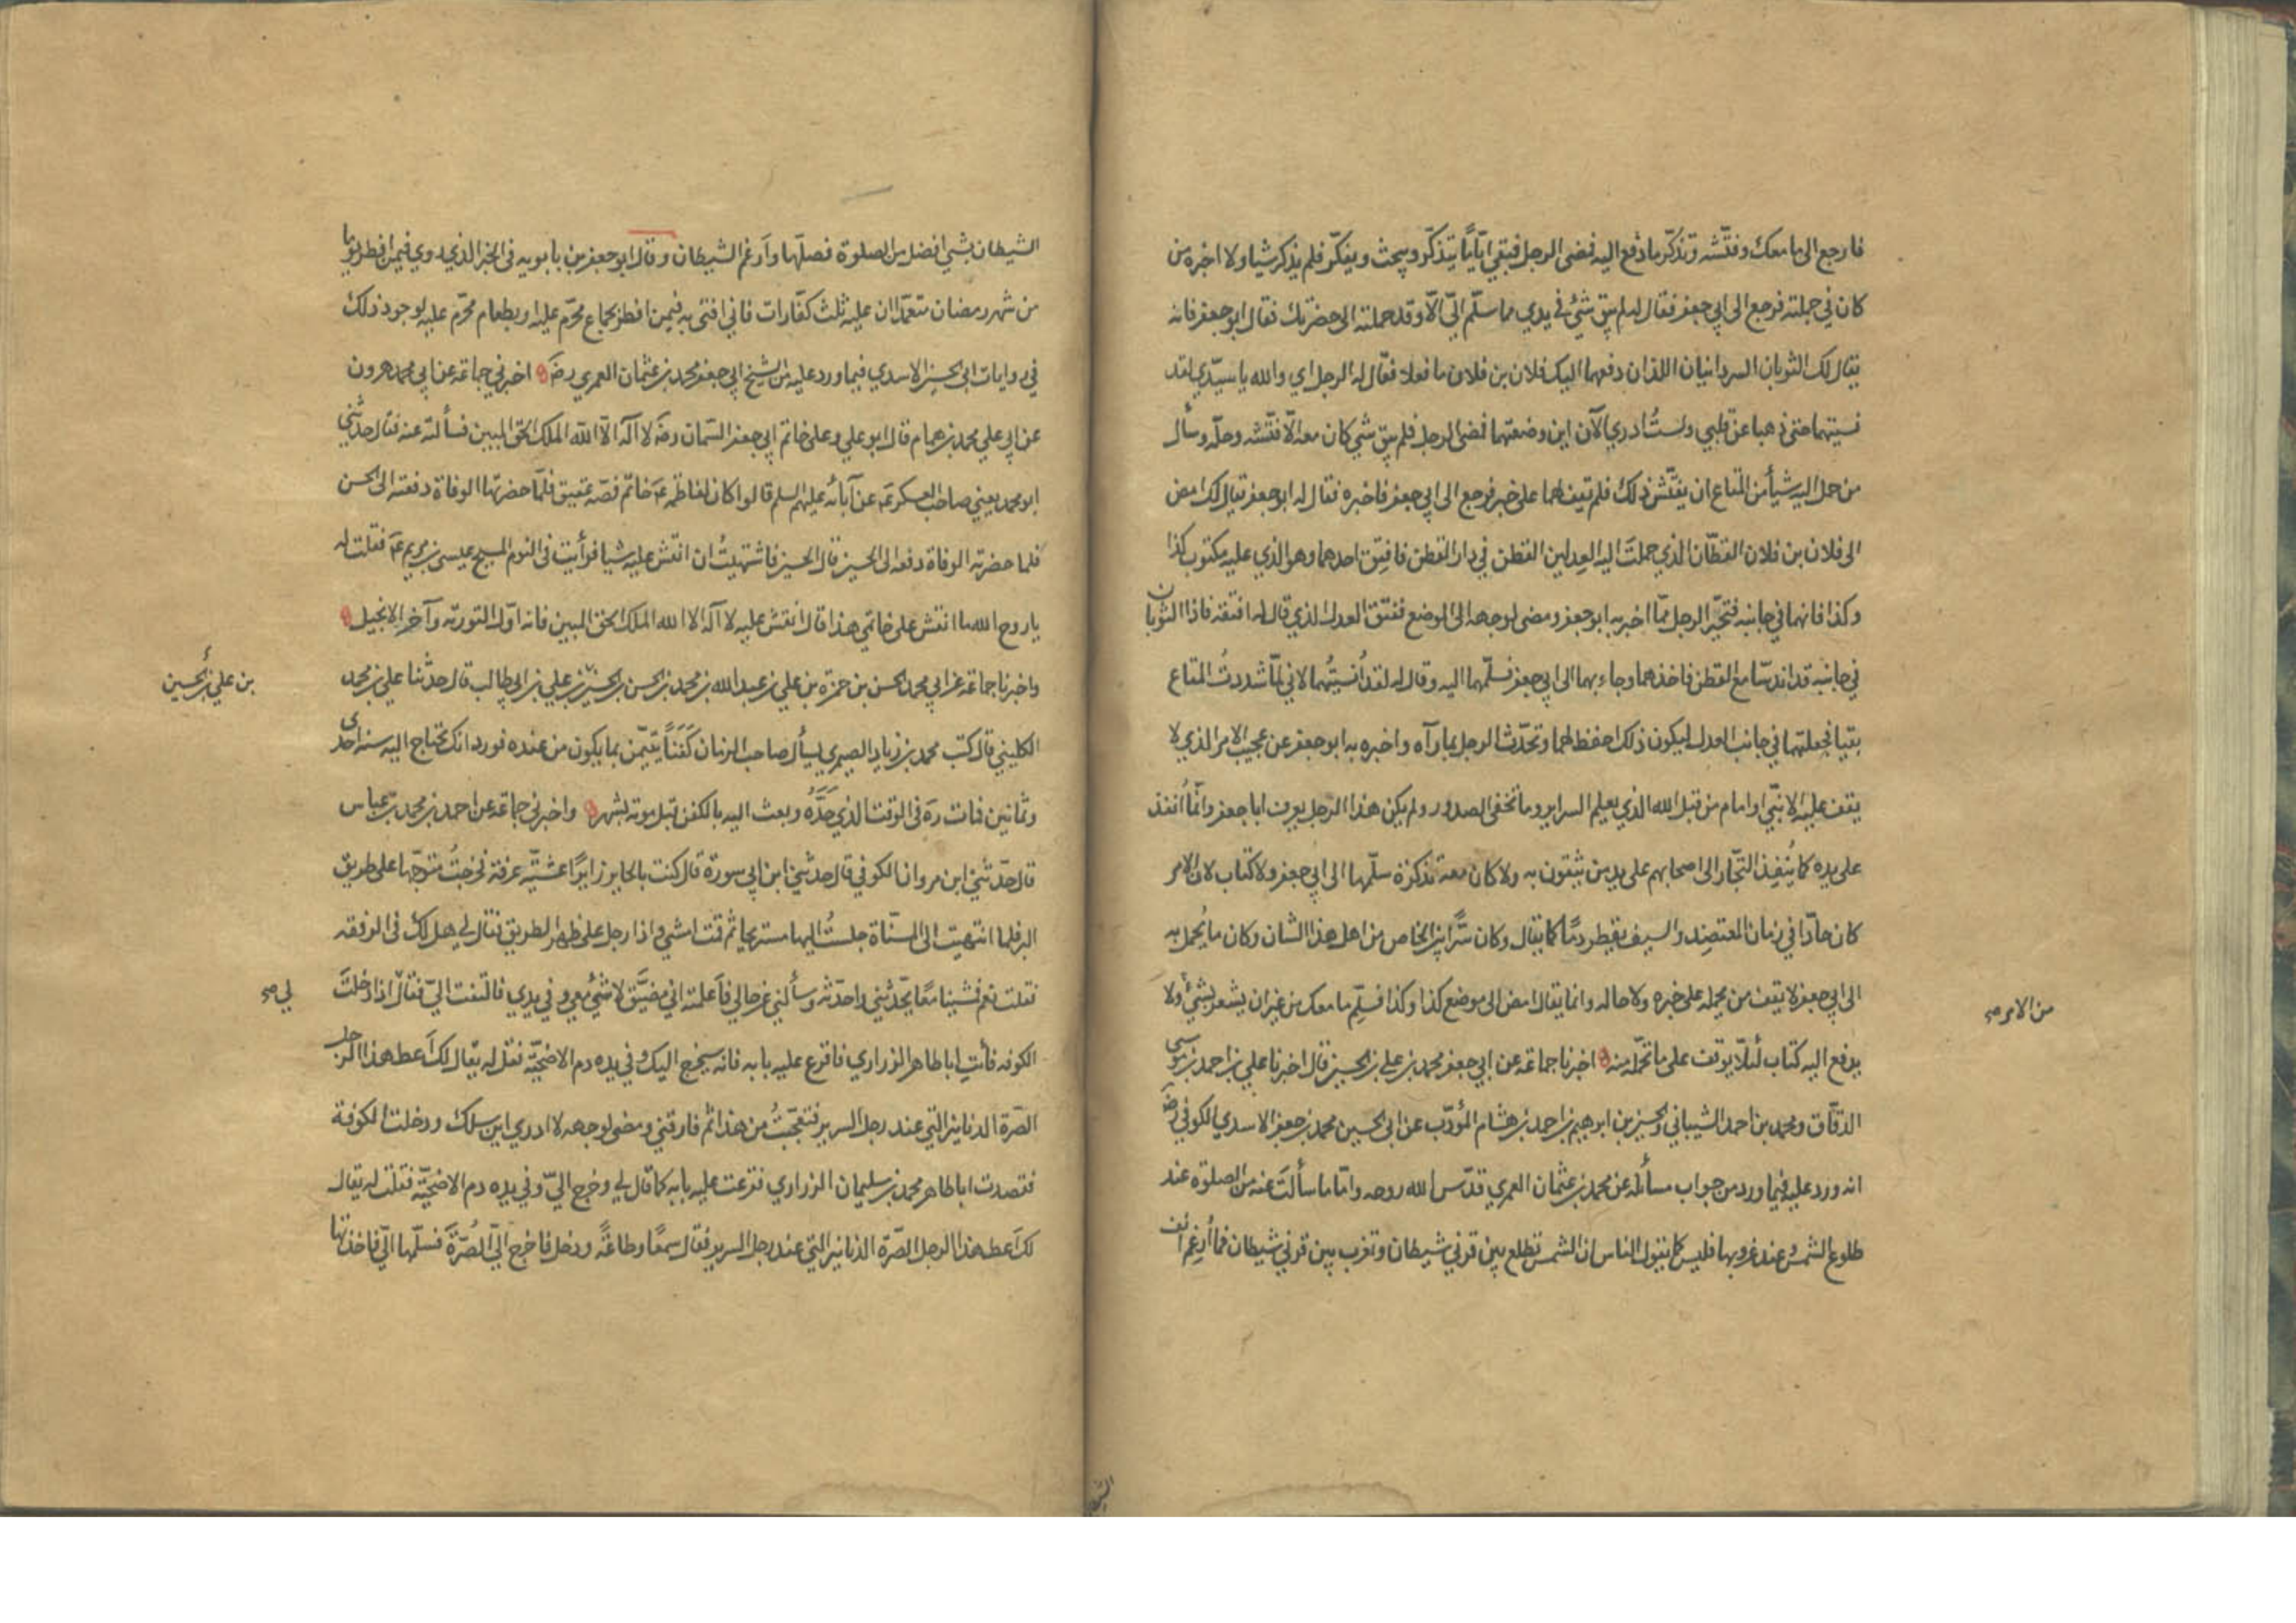 فارجع الى ما معك وفتّشه وتذكّر ما دفع اليه فمضى الرجل فبقي ايّامًا يتذكّر ويبحث ويفكّر فلم يذكر شيا ولا اخبره من
كان في جملته فرجع الى ابي جعفر فقال له لم يبق شئ في يدي مما سلّم اليّ الّا وقد حملته الى حضرتك فقال ابو جعفر فانه
يقال لك الثوبان السردانيان اللذان دفعهما اليك فلان بن فلان ما فعلا فقال له الرجل اي والله يا سيّدي لقد
نسيتهما حتى ذهبا عن قلبي ولستُ ادري الآن اين وضعتهما فمضى الرجل فلم يبق شي كان معه الّا فتّشه وحلّه وسأل
من حمل اليه شيأ من المتاع ان يفتّش ذلك فلم يقف لهما على خبر فرجع الى ابي جعفر فاخبره فقال له ابو جعفر يقال لك امض
الى فلان بن فلان القطّان الذي حملتَ اليه العدلين القطن في دار القطن فافتق احدهما وهو الذي عليه مكتوب كذا
وكذا فانهما في جانبه فتحيّر الرجل ممّا اخبر به ابو جعفر ومضى لوجهه الى الموضع ففتق العدل الذي قال له افتقه فاذا الثوبان
في جانبه قد اندسّا مع القطن فاخذهما وجاء بهما الى ابي جعفر فسلّمهما اليه وقال له لقد اُنسيتُهما لاني لمّا شددتُ المتاع
بقيا فجعلتهما في جانب العدل ليكون ذلك احفظ لهما وتحدّث الرجل بما رآه واخبره به ابو جعفر عن عجيب الامر الذي لا
يقف عليه الا نبّي او امام من قبل الله الذي يعلم السراير وما تخفى الصدور ولم يكن هذا الرجل يعرف ابا جعفر وانّما اُنفذ
على يده كما يُنفِذ التجّار الى اصحابهم على يد من يثقون به ولا كان معه تذكرة سلّمها الى ابي جعفر ولا كتاب لان الامر
كان حادّا في زمان المعتضِد والسيف يقطر دمًا كما يقال وكان سّرًا بين الخاص من اهل هذا الشان وكان ما يُحمل به
الى ابي جعفر لا يقف من يحمله على خبره ولا حاله وانما يقال امض الى موضع كذا وكذا فسلّم ما معك من غير ان يشعر بشئ ولا
من الامر صح
يدفع اليه كتاب لئلّا يوقف على ما تحمّله منه اخبرنا جماعة عن ابي جعفر محمد بن علي بن الحسين قال اخبرنا علي بن احمد بن موسى
الدقّاق ومحمد بن احمد الشيباني والحسين بن ابرهيم بن احمد بن هشام المؤدّب عن ابي الحسين محمد بن جعفر الاسدي الكوفي رضَ
انه ورد عليه فيما ورد من جواب مسائله عن محمد بن عثمان العمري قدّس الله روحه وامّا ما سألتَ عنه من الصلوة عند
طلوع الشمس وعند غروبها فليس كما يقول الناس ان الشمس تطلع بين قرني شيطان وتغرب بين قرني شيطان فما اُرغِم انف
الشيطان بشيء افضل من الصلوة فصلّها وأرغم الشيطان وقال ابو جعفر بن بابويه في الخبر الذي روي فيمن افطر يوما
من شهر رمضان متعمّدا ان عليه ثلث كفّارات فاني افتى به فيمن افطر بجماع محرّم عليه او بطعام محرّم عليه لوجود ذلك
في روايات ابي الحسين الاسدي فيما ورد عليه من الشيخ ابي جعفر محمد بن عثمان العمري رضَ اخبرني جماعة عن ابي محمد هرون
عن ابي علي محمد بن همام قال ابو علي وعلى خاتم ابي جعفر السّمان رضَ لا آله الا الله الملك الحق المبين فسألته عنه فقال حدّثني
ابو محمد يعني صاحب العسكر عَ عن آبائه عليهم السلم قالوا كان لفاطمه عَ خاتم فصّه عقيق فلمّا حضرتها الوفاة دفعته الى الحسن
فلما حضرته الوفاة دفعه الى الحسين قال الحسين فاشتهيتُ ان انقش عليه شيا فرأيت في النوم المسيح عيسى بن مريم عَ فقلت له
يا روح الله ما انقش على خاتمي هذا قال انقش عليه لا آله الا الله الملك الحق المبين فانه اوّل التورية وآخر الانجيل
واخبرنا جماعة عن ابي محمد الحسن بن حمزه بن علي بن عبد الله بن محمد بن الحسن بن الحسين بن علي بن ابي طالب قال حدّثنا علي بن محمد
بن علي بن الحسين
الكليني قال كتب محمد بن زياد الصيمري يسأل صاحب الزمان كَفَنًا يتيّمن بما يكون من عنده فورد انك تحتاج اليه سنة احدى
وثمانين فمات ره في الوقت الذي حَدَّه وبعث اليه بالكفن قبل موته بشهر واخبرني جماعة عن احمد بن محمد بن عباس
قال حدّثني ابن مروان الكوفي قال حدثني ابن ابي سورة قال كنت بالحاير زايرًا عشيّة عرفة فخرجتُ متوجّها على طريق
البر فلما انتهيت الى المسنّاة جلستُ اليها مستريحا ثم قمت امشي واذا رجل على ظهر الطريق فقال لي هل لك في الرفقه
فقلت نعم فمشينا معًا يحدّثني واحدّثه وسألني عن حالي فأعلمته اني مضيَّق لا شئ معي وفي يدي فالتفت اليّ فقال اذا دخلتَ
لي صح
الكوفه فأتِ ابا طاهر الزراري فاقرع عليه بابه فانه سيخرج اليك وفي يده دم الاضحيّة فقل له يقال لك أعط هذا الرجل
الصّرة الدنانير التي عند رجل السرير فتعجّبتُ من هذا ثم فارقني ومضى لوجهه لا ادري اين سلك ودخلت الكوفة
فقصدت ابا طاهر محمد بن سليمان الزراري فقرعت عليه بابه كما قال لي وخرج اليّ وفي يده دم الاضحيّة فقلت له يقال
لك أعط هذا الرجل الصّرة الدنانير التي عند رجل السرير فقال سمعًا وطاعةً ودخل فاخرج اليّ الصُرَّة فسلّمها الّي فاخذتها